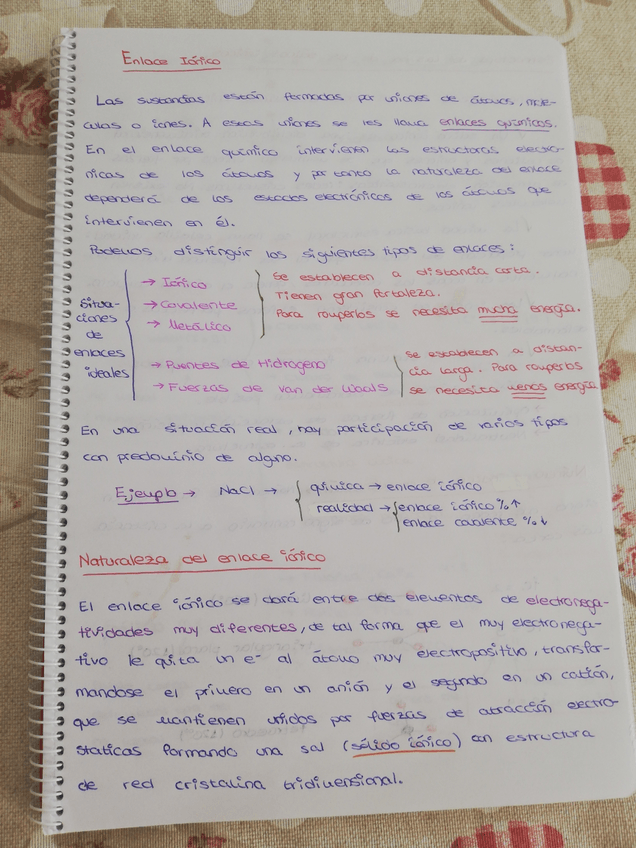 Enlace Iónico
Las sustancias están formadas por uniones de átomos, molé-
culas o iones. A estas uniones se les llama enlaces químicos.
En el enlace químico intervienen las estructuras electró-
nicas de los átomos y por tanto la naturaleza del enlace
dependerá de los estados electrónicos de los átomos que
intervienen en él.
Podemos distinguir los siguientes tipos de enlaces:
Situa-
ciones
de
enlaces
ideales
→ Iónico
→ Covalente
→ Metálico
Se establecen a distancia corta.
Tienen gran fortaleza.
Para romperlos se necesita mucha energía.
→ Puentes de Hidrógeno
→ Fuerzas de van der Waals
Se establecen a distan-
cia larga. Para romperlos
se necesita menos energía
En una situación real, hay participación de varios tipos
con predominio de alguno.
Ejemplo → NaCl → química → enlace iónico
realidad → enlace iónico % ↑
enlace covalente % ↓
Naturaleza del enlace iónico
El enlace iónico se dará entre dos elementos de electronega-
tividades muy diferentes, de tal forma que el muy electronega-
tivo le quita un e- al átomo muy electropositivo, transfor-
mandose el primero en un anión y el segundo en un catión,
que se mantienen unidos por fuerzas de atracción electro-
staticas formando una sal (sólido iónico) con estructura
de red cristalina tridimensional.